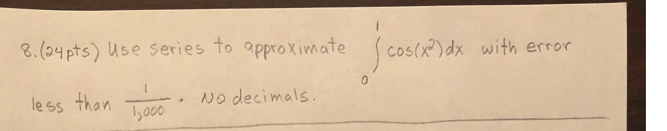 8. (24pts) Use series to approximate ∫₀¹ cos(x²)dx with error
less than 1/1,000 . No decimals.